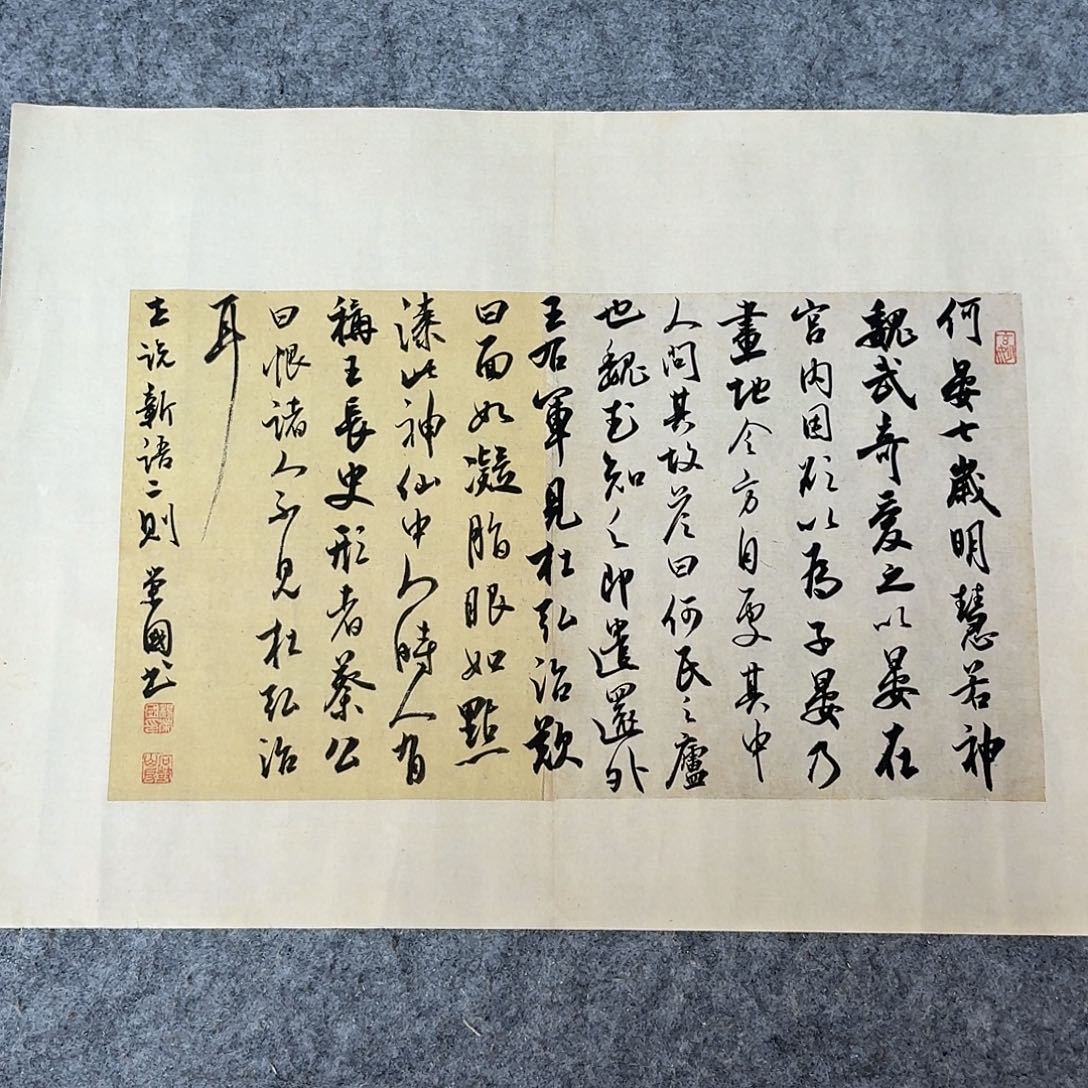 何晏七歲明慧若神
魏武奇愛之以晏在
宮內因欲以為子晏乃
畫地令方自處其中
人問其故答曰何氏之廬
也魏武知之即遣還外
王右軍見杜弘治歎
曰面如凝脂眼如點
漆此神仙中人時人有
稱王長史形者蔡公
曰恨諸人不見杜弘治
耳
世說新語二則 業國書